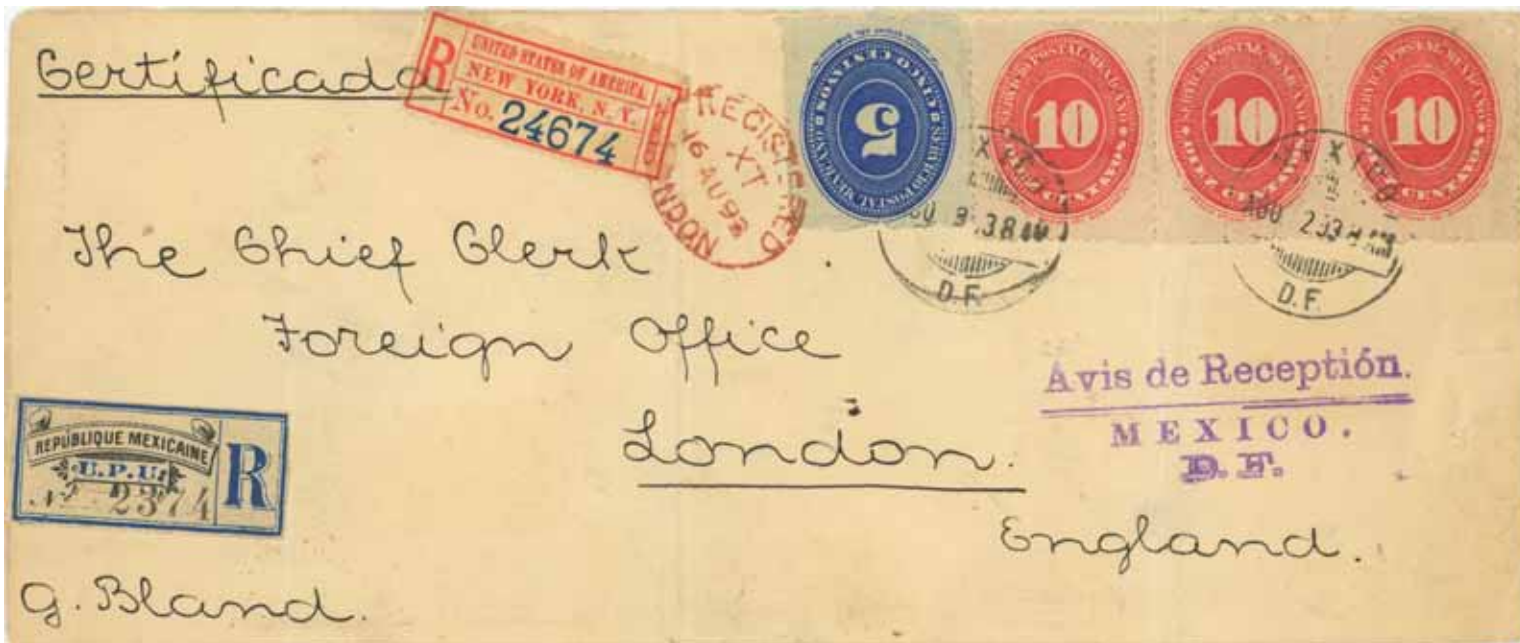 Certificada
R
UNITED STATES OF AMERICA.
NEW YORK, N. Y.
No. 24674
REGISTERED
XT
16 AU 93
LONDON
SERVICIO POSTAL MEXICANO
CINCO CENTAVOS
5
SERVICIO POSTAL MEXICANO
10
DIEZ CENTAVOS
SERVICIO POSTAL MEXICANO
10
DIEZ CENTAVOS
SERVICIO POSTAL MEXICANO
10
DIEZ CENTAVOS
D.F.
MEXICO
AGO 2 93 8 AM
D.F.
The Chief Clerk
Foreign Office
London.
England.
Avis de Receptión.
MEXICO.
D. F.
REPUBLIQUE MEXICAINE
U.P.U.
No 2374
R
G. Bland.